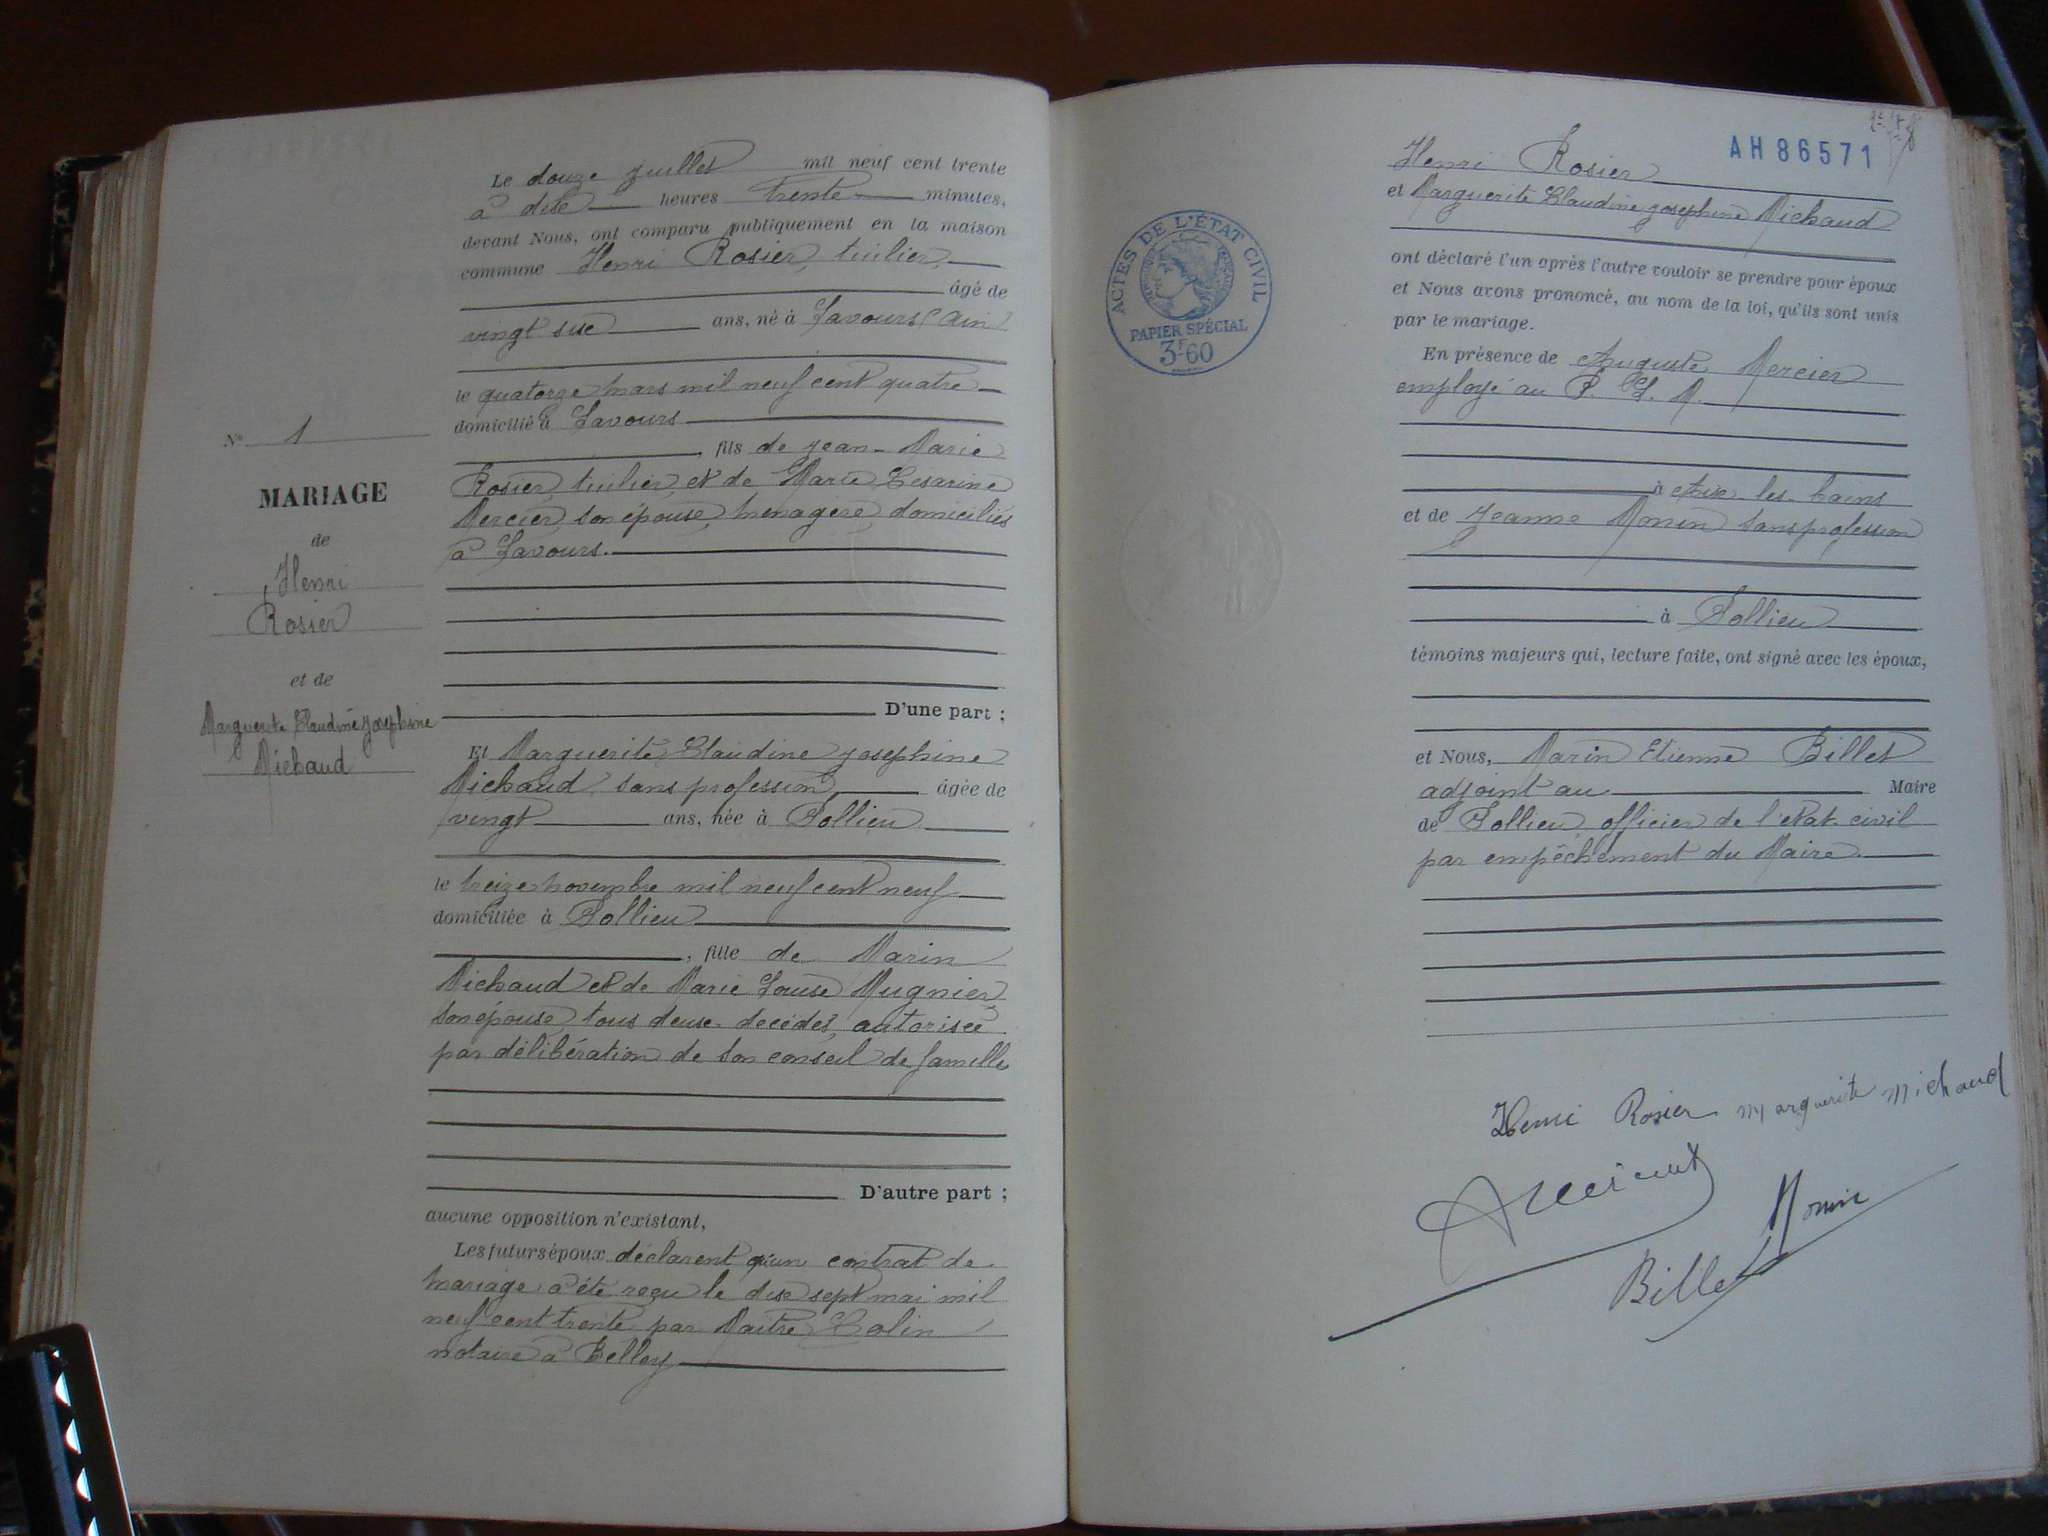 Le douze juillet mil neuf cent trente
à dix heures trente minutes,
devant Nous, ont comparu publiquement en la maison
commune Henri Rosier, tuilier,
âgé de
vingt six ans, né à Lavours (Ain
le quatorze mars mil neuf cent quatre
domicilié à Lavours
, fils de Jean-Marie
Rosier, tuilier, et de Marie Césarine
Mercier, son épouse, ménagère, domiciliés
à Lavours.
D'une part ;
Et Marguerite Claudine Josephine
Michaud sans profession, âgée de
vingt ans, née à Pollieu
le treize novembre mil neuf cent neuf
domiciliée à Pollieu
, fille de Marin
Michaud et de Marie Louise Mugnier,
son épouse, tous deux décédés, autorisée
par délibération de son conseil de famille
D'autre part ;
aucune opposition n'existant,
Les futurs époux déclarent qu'un contrat de
mariage a été reçu le dix sept mai mil
neuf cent trente par Maître Colin
notaire à Belley
No 1
MARIAGE
de
Henri
Rosier
et de
Marguerite Claudine Josephine
Michaud
AH 86571
Henri Rosier
et Marguerite Claudine Josephine Michaud
ont déclaré l'un après l'autre vouloir se prendre pour époux
et Nous avons prononcé, au nom de la loi, qu'ils sont unis
par le mariage.
En présence de Auguste Mercier
employé au P. L. M.
à Aix-les-bains
et de Jeanne Monin sans profession
à Pollieu
témoins majeurs qui, lecture faite, ont signé avec les époux,
et Nous, Marin Etienne Billet
adjoint au Maire
de Pollieu, officier de l'état civil
par empêchement du Maire.
ACTES DE L'ÉTAT CIVIL
PAPIER SPÉCIAL
3F60
Henri Rosier Marguerite Michaud
Monin
Billet